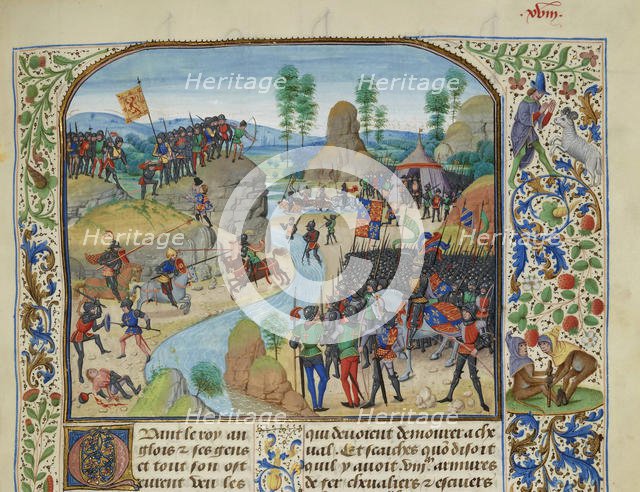 .xviij.
Heritage Heritage Heritage
Heritage Heritage Heritage
Heritage Heritage Heritage
C
Quant le roy an
glois & ses gens
et tout son ost
eurent veu les
qui devoient demourer a che
val. Et scaches quō disoit
quil y avoit armures
de fer chevaliers & escuiers